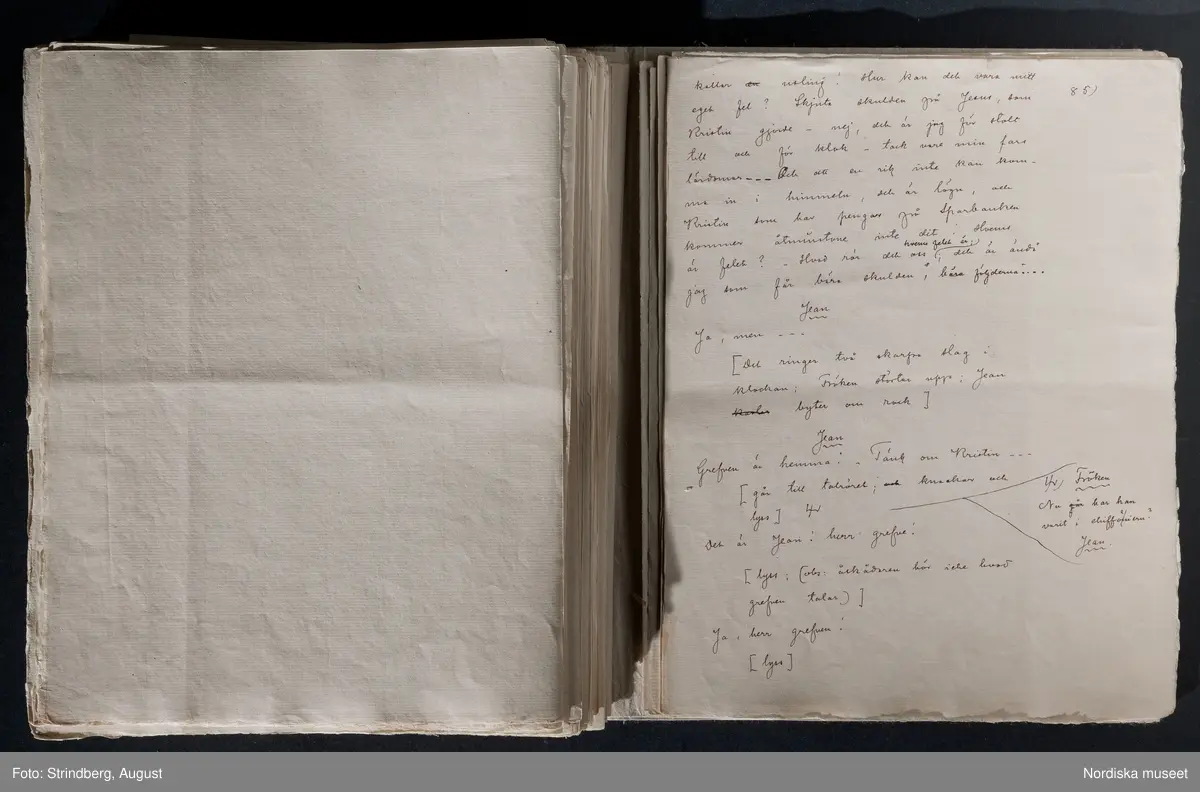 kallar en usling! Hur kan det vara mitt
85)
eget fel? Skjuta skulden på Jesus, som
Kristin gjorde – nej, det är jag för stolt
till och för klok – tack vare min fars
lärdomar --- Och att en rik inte kan kom-
ma in i himmeln, det är lögn, och
Kristin som har pengar på Sparbanken
kommer åtminstone inte dit! Hvems
är felet? – Hvad rör det oss hvems felet är; det är ändå
jag som får bära skulden, bära följderna ---
Jean
Ja, men ---
[Det ringer två skarpa slag i
klockan; Fröken störtar upp; Jean
byter om rock]
Jean
Grefven är hemma! – Tänk om Kristin ---
[går till talröret; och knackar och
lyss]
Fröken
Nu har han
varit i chiffonieren?
Jean
Det är Jean! herr grefve!
[lyss; (obs: åskådaren hör icke hvad
grefven talar)]
Ja, herr grefven!
[lyss]
Foto: Strindberg, August
Nordiska museet